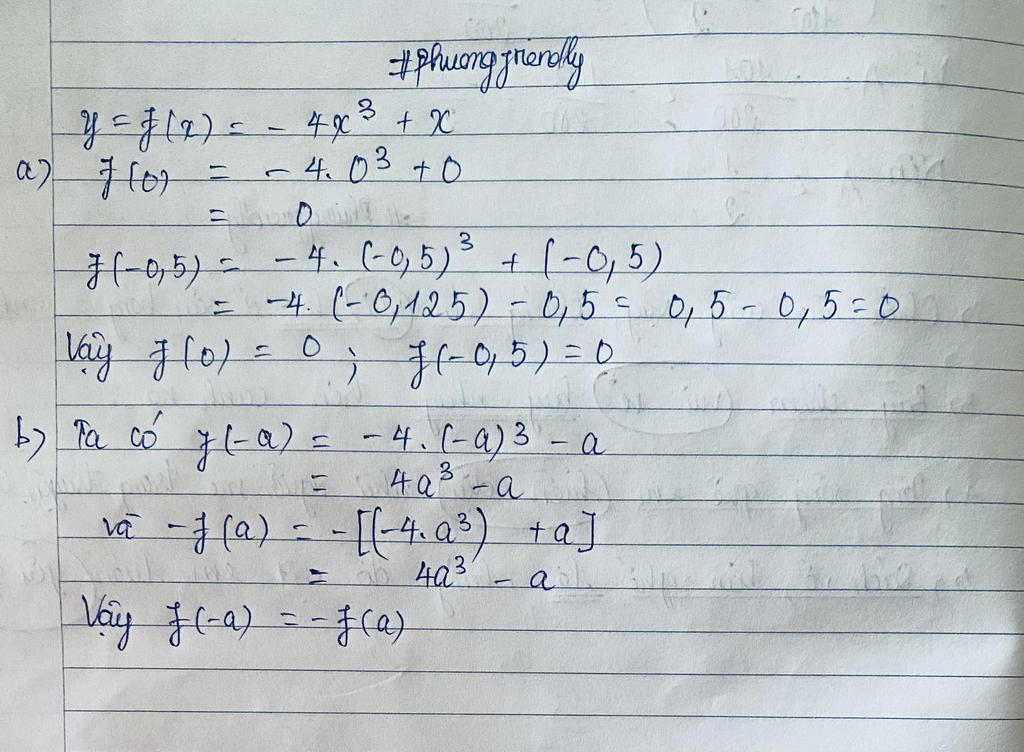 #Phuongfriendly
y = f(x) = - 4x³ + x
a) f(0) = - 4. 0³ + 0
= 0
f(-0,5) = -4. (-0,5)³ + (-0,5)
= -4. (-0,125) - 0,5 = 0,5 - 0,5 = 0
Vậy f(0) = 0 ; f(-0,5) = 0
b) Ta có f(-a) = -4. (-a)³ - a
= 4a³ - a
và -f(a) = -[(-4. a³) + a]
= 4a³ - a
Vậy f(-a) = -f(a)